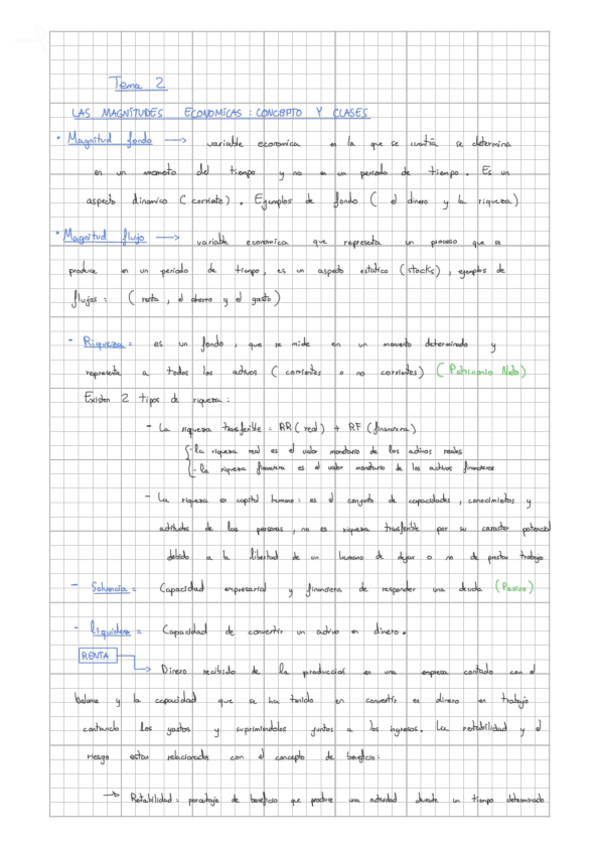 Tema 2
LAS MAGNITUDES ECONOMICAS: CONCEPTO Y CLASES
· Magnitud fondo → variable economica en la que se cuantía se determina
en un momento del tiempo y no en un periodo de tiempo. Es un
aspecto dinamico (corriente). Ejemplos de fondo ( el dinero y la riqueza)
· Magnitud flujo → variable económica que representa un proceso que se
produce en un periodo de tiempo, es un aspecto estatico (stocks), ejemplos de
flujos: ( renta, el ahorro y el gasto)
- Riqueza: es un fondo, que se mide en un momento determinado y
representa a todos los activos ( corrientes o no corrientes) ( Patrimonio Neto)
Existen 2 tipos de riqueza:
- La riqueza trasferible: RR (real) + RF (financiera)
-la riqueza real es el valor monetario de los activos reales
-la riqueza financiera es el valor monetario de los activos financieros
- La riqueza en capital humano: es el conjunto de capacidades, conocimientos y
actitudes de las personas, no es riqueza trasferible por su caracter potencial
debido a la libertad de un humano de dejar o no de prestar trabajo
- Solvencia = Capacidad empresarial y financiera de responder una deuda (Pasivo)
- liquidez = Capacidad de convertir un activo en dinero.
RENTA
→ Dinero recibido de la produccion en una empresa contado con el
balance y la capacidad que se ha tenido en convertir en dinero en trabajo
contando los gastos y suprimiendolos juntos a los ingresos. La rentabilidad y el
riesgo estan relacionados con el concepto de beneficio:
→ Retabilidad: porcentaje de beneficio que produce una actividad durante un tiempo determinado